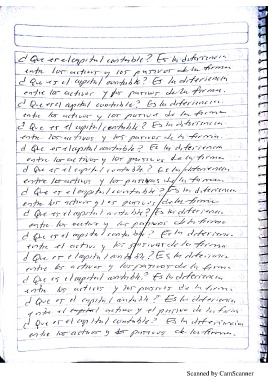 ¿Que es el capital contable? Es la diferencia
entre los activos y los pasivos de la firma.
¿Que es el capital contable? Es la diferencia
entre los activos y los pasivos de la firma.
¿Que es el capital contable? Es la diferencia
entre los activos y los pasivos de la firma.
¿Que es el capital contable? Es la diferencia
entre los activos y los pasivos de la firma.
¿Que es el capital contable? Es la diferencia
entre los activos y los pasivos de la firma
¿Que es el capital contable? Es la diferencia
entre los activos y los pasivos de la firma.
¿Que es el capital contable? Es la diferencia
entre los activos y los pasivos de la firma.
¿Que es el capital contable? Es la diferencia
entre los activos y los pasivos de la firma
¿Que es el capital contable? Es la diferencia
entre el activo y los pasivos de la firma
¿Que es el capital contable? Es la diferencia
entre los activos y los pasivos de la firma.
¿Que es el capital contable? Es la diferencia
entre los activos y los pasivos de la firma.
¿Que es el capital contable? Es la diferencia
entre el capital activo y el pasivo de la firma
¿Que es el capital contable? Es la diferencia
entre los activos y los pasivos de la firma.
Scanned by CamScanner